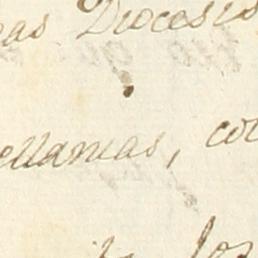 eas Diocesis
ellanias, co
los